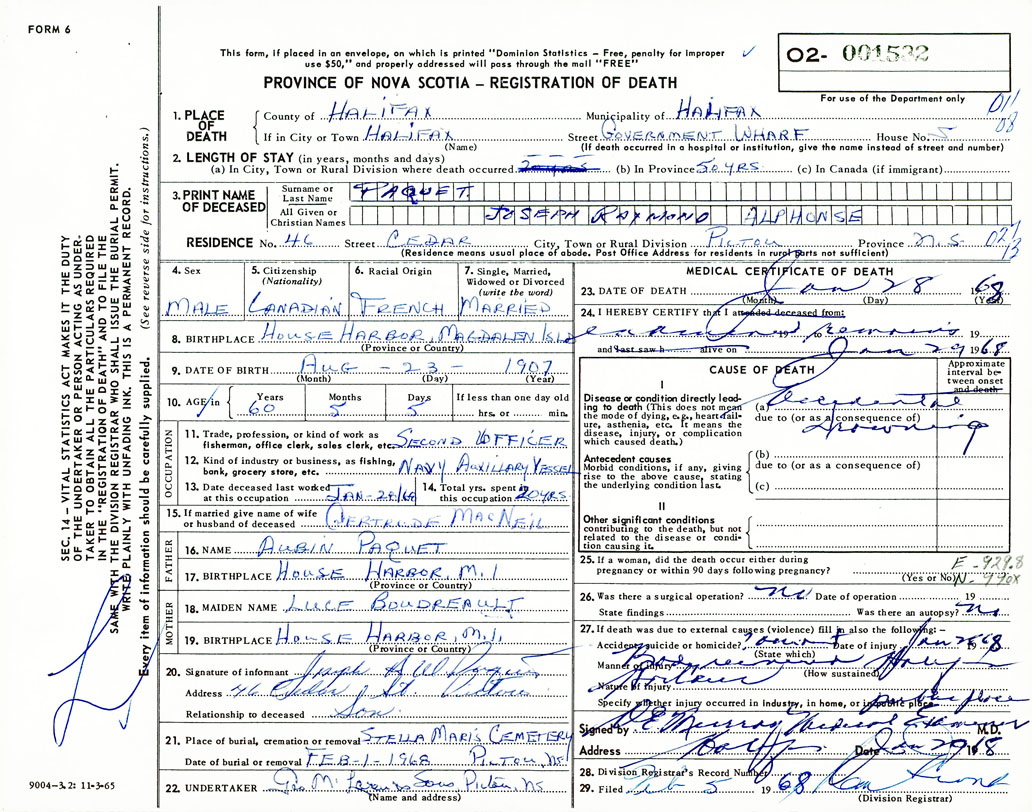 FORM 6
This form, if placed in an envelope, on which is printed "Dominion Statistics – Free, penalty for improper
use $50," and properly addressed will pass through the mail "FREE"
O2- 001532
For use of the Department only
PROVINCE OF NOVA SCOTIA – REGISTRATION OF DEATH
SEC. 14 – VITAL STATISTICS ACT MAKES IT THE DUTY
OF THE UNDERTAKER OR PERSON ACTING AS UNDER-
TAKER TO OBTAIN ALL THE PARTICULARS REQUIRED
IN THE "REGISTRATION OF DEATH" AND TO FILE THE
SAME WITH THE DIVISION REGISTRAR WHO SHALL ISSUE THE BURIAL PERMIT.
WRITE PLAINLY WITH UNFADING INK. THIS IS A PERMANENT RECORD.
Every item of information should be carefully supplied. (See reverse side for instructions.)
1. PLACE OF DEATH
County of HALIFAX Municipality of HALIFAX 011
If in City or Town HALIFAX Street GOVERNMENT WHARF House No. 5 08
(Name) (If death occurred in a hospital or institution, give the name instead of street and number)
2. LENGTH OF STAY (in years, months and days)
(a) In City, Town or Rural Division where death occurred (b) In Province 50 YRS (c) In Canada (if immigrant)
3. PRINT NAME OF DECEASED
Surname or Last Name PAQUET
All Given or Christian Names JOSEPH RAYMOND ALPHONSE
RESIDENCE No. 46 Street CEDAR City, Town or Rural Division PICTOU Province N.S. 02
(Residence means usual place of abode. Post Office Address for residents in rural parts not sufficient) 13
4. Sex 5. Citizenship (Nationality) 6. Racial Origin 7. Single, Married, Widowed or Divorced (write the word)
MALE CANADIAN FRENCH MARRIED
8. BIRTHPLACE HOUSE HARBOR, MAGDALEN ISLD
(Province or Country)
9. DATE OF BIRTH AUG – 23 – 1907
(Month) (Day) (Year)
10. AGE in Years 60 Months 5 Days 5 If less than one day old hrs. or min.
OCCUPATION
11. Trade, profession, or kind of work as
fisherman, office clerk, sales clerk, etc. SECOND OFFICER
12. Kind of industry or business, as fishing,
bank, grocery store, etc. NAVY AUXILLARY VESSEL
13. Date deceased last worked
at this occupation JAN-28/68
14. Total yrs. spent in
this occupation 20 YRS
15. If married give name of wife
or husband of deceased GERTRUDE MACNEIL
FATHER
16. NAME AUBIN PAQUET
17. BIRTHPLACE HOUSE HARBOR, M.I
(Province or Country)
MOTHER
18. MAIDEN NAME LUCE BOUDREAULT
19. BIRTHPLACE HOUSE HARBOR, M.I.
(Province or Country)
20. Signature of informant Joseph
Address 46 St. Pictou
Relationship to deceased Son
21. Place of burial, cremation or removal STELLA MARIS CEMETERY
Date of burial or removal FEB-1-1968 PICTOU, NS
22. UNDERTAKER Sons Pictou, NS
(Name and address)
9004–3.2: 11-3-65
MEDICAL CERTIFICATE OF DEATH
23. DATE OF DEATH Jan 28 1968
(Month) (Day) (Year)
24. I HEREBY CERTIFY that I attended deceased from:
examined remains 19 to 19
and last saw h alive on Jan 29 1968
CAUSE OF DEATH
Approximate interval between onset and death
I
Disease or condition directly lead-
ing to death (This does not mean
the mode of dying, e.g., heart fail-
ure, asthenia, etc. It means the
disease, injury, or complication
which caused death.)
(a) Accidental
due to (or as a consequence of)
Drowning
Antecedent causes
Morbid conditions, if any, giving
rise to the above cause, stating
the underlying condition last.
(b)
due to (or as a consequence of)
(c)
II
Other significant conditions
contributing to the death, but not
related to the disease or condi-
tion causing it.
25. If a woman, did the death occur either during
pregnancy or within 90 days following pregnancy?
(Yes or No)
E - 929.8
N - 990X
26. Was there a surgical operation? no Date of operation 19
State findings Was there an autopsy? no
27. If death was due to external causes (violence) fill in also the following:–
Accident, suicide or homicide? accident Date of injury Jan 28 1968
(State which)
Manner of injury Body recovered
(How sustained)
Nature of injury
Specify whether injury occurred in Industry, in home, or in public place public place
Signed by D E Murray Medical Examiner M.D.
Address Halifax Date Jan 29 1968
28. Division Registrar's Record Number
29. Filed Feb 5 1968
(Division Registrar)